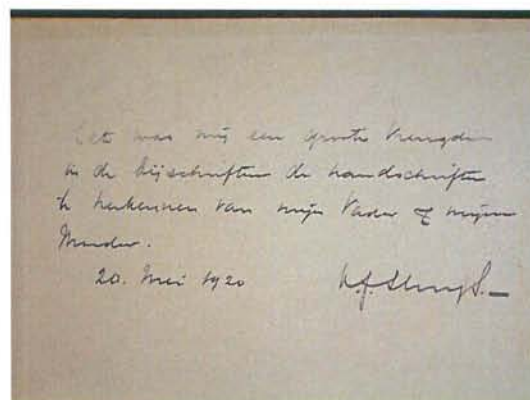 Het was mij een groote vreugde
in de bijschriften de handschriften
te herkennen van mijn Vader & mijn
Moeder.
20. Mei 1920